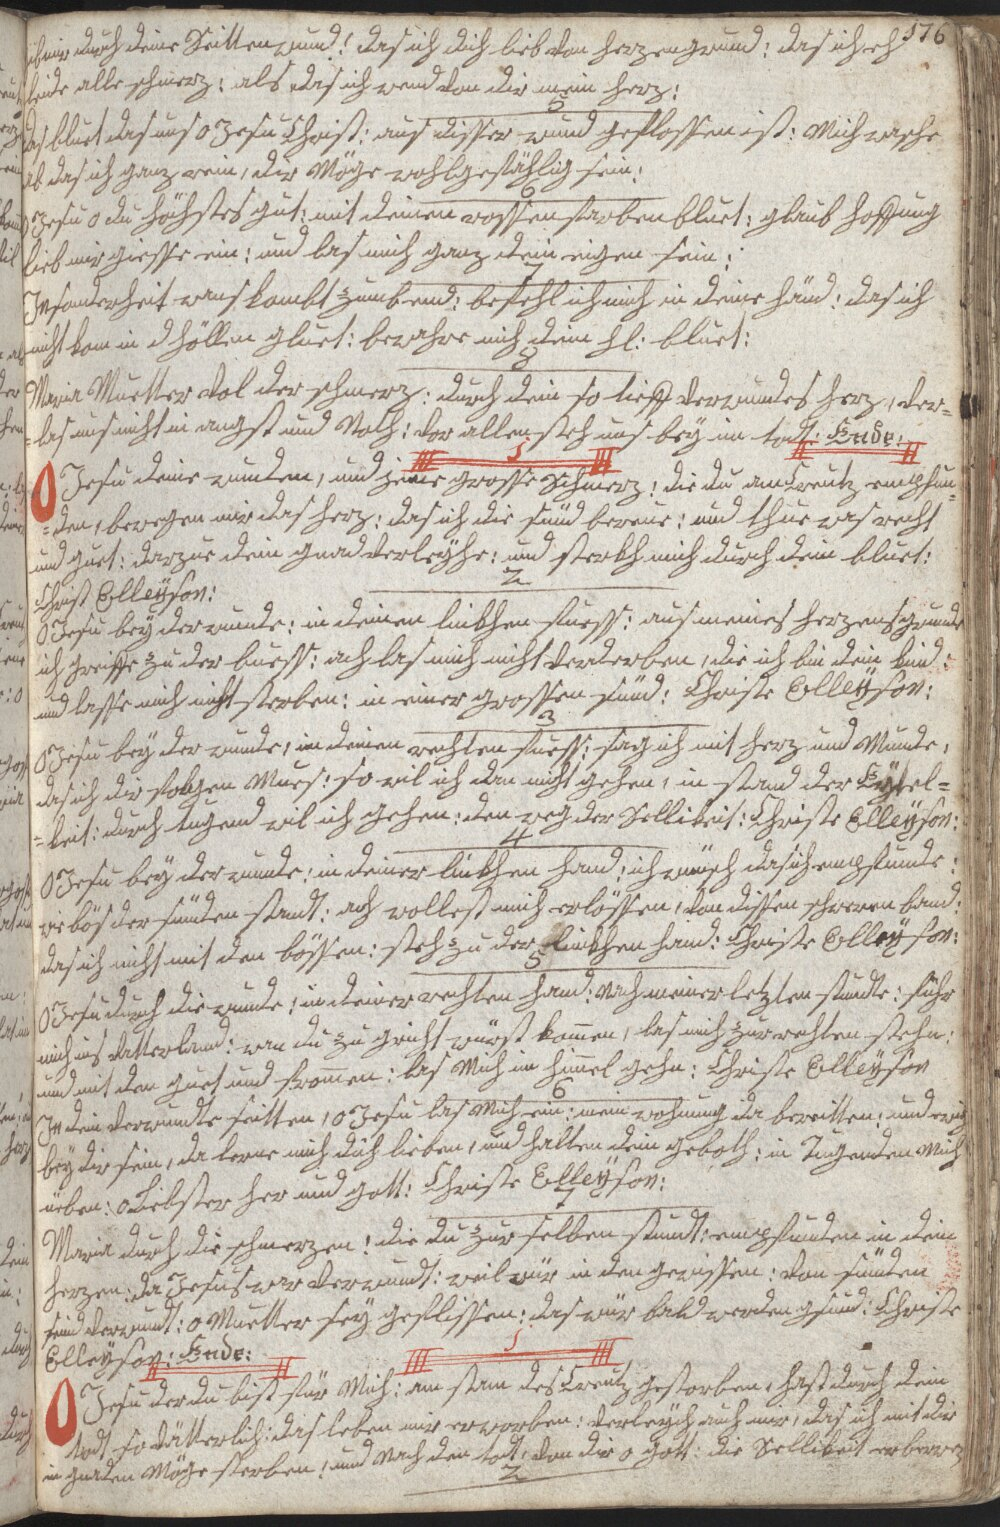 576
mir durch deine Seitten wund! das ich dich lieb von herzen grund: das ich eh
leide alle schmerz: als das ich wend von dir mein herz:
5
das bluet das uns o Jesu Christ: aus disser wund geflossen ist: Mich wasche
ab das ich ganz rein, dir Möge wohlgefählig sein:
6
O Jesu o du höchstes gut: mit deinen rossenfarben bluet: glaub hoffnung
lieb mir giesse ein: und las mich ganz dein eigen sein:
7
Insonderheit wans kombt zum end: befehl ich mich in deine händ: das ich
nicht kom in d höllen gluet: bewahre mich dein hl: bluet:
8
Maria Muetter vol der schmerz: durch dein so tieff verwundes herz, ver=
=las uns nicht in angst und Noth: vor allen steh uns bey im todt: Ende:
1
O Jesu deine wunden, und deine grosse Schmerz! die du am Creutz empfun=
=den, bewegen mir das herz: das ich die sünd bereue: und thue was recht
und guet: darzue dein gnad verleyhe: und sterkh mich durch dein bluet:
Christ Elleyson:
2
O Jesu bey der wunde: in deinen linkhen fuess: aus meines herzens grunde
ich greiffe zu der buess: ach las mich nicht verderben, die ich bin dein kind:
und lasse mich nicht sterben: in einer grossen sünd: Christe Elleyson:
3
O Jesu bey der wunde, in deinen rechten fuess: sag ich mit herz und Munde,
das ich dir folgen Mues: so vil ich dan nicht gehen, in stand der Eytel=
=keit: durch tugend wil ich gehen: den weg der Sellikeit: Christe Elleyson:
4
O Jesu bey der wunde: in deiner linkhen hand: ich wünsch das ich empfunde:
wie bös der sünden standt: ach wollest mich erlössen, von dissen schweren band:
das ich nicht mit den bössen: steh zu der linkhen hand: Christe Elleyson:
5
O Jesu durch die wunde, in deiner rechten hand: nach meiner letzten stundte: führ
mich ins Vatterland: wan du zu gricht würst kommen, las mich zur rechten stehn:
und mit den guet und frommen: las Mich im himmel gehn: Christe Elleyson
6
In dein verwundte seitten, o Jesu las Mich ein: mein wohnung da bereitten: und ewig
bey dir sein, da lerne mich dich lieben, und halten dein geboth: in Tugenden Mich
üeben: o Liebster her und gott: Christe Elleyson:
7
Maria durch die schmerzen! die du zur selben stundt: empfunden in dein
herzen: da Jesus war verwundt: weil wür in den gewissen: von sünden
seind verwundt: o Muetter sey geflissen: das wür bald werden gsund: Christe
Elleyson: Ende:
1
O Jesu der du bist für Mich: am stam des Creutz gestorben, hast durch dein
todt so vätterlich: das leben mir erworben: verleych auch mir, das ich mit dir
in gnaden Möge sterben: und Nach den todt, von dir o gott: die Sellikeit erberwe
2